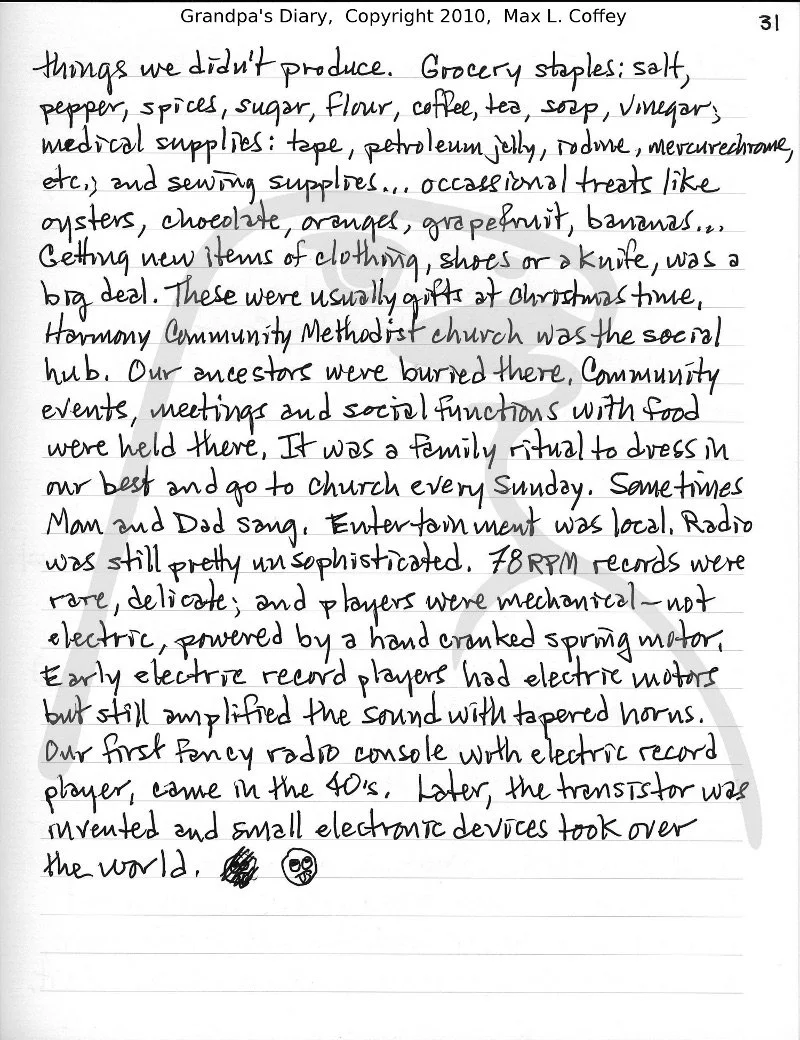 Grandpa's Diary, Copyright 2010, Max L. Coffey
31
things we didn't produce. Grocery staples: salt,
pepper, spices, sugar, flour, coffee, tea, soap, vinegar;
medical supplies: tape, petroleum jelly, iodine, mercurechrome,
etc.; and sewing supplies... occassional treats like
oysters, chocolate, oranges, grapefruit, bananas...
Getting new items of clothing, shoes or a knife, was a
big deal. These were usually gifts at Christmas time.
Harmony Community Methodist church was the social
hub. Our ancestors were buried there. Community
events, meetings and social functions with food
were held there. It was a family ritual to dress in
our best and go to church every Sunday. Sometimes
Mom and Dad sang. Entertainment was local. Radio
was still pretty unsophisticated. 78 RPM records were
rare, delicate; and players were mechanical - not
electric, powered by a hand cranked spring motor.
Early electric record players had electric motors
but still amplified the sound with tapered horns.
Our first fancy radio console with electric record
player, came in the 40's. Later, the transistor was
invented and small electronic devices took over
the world.